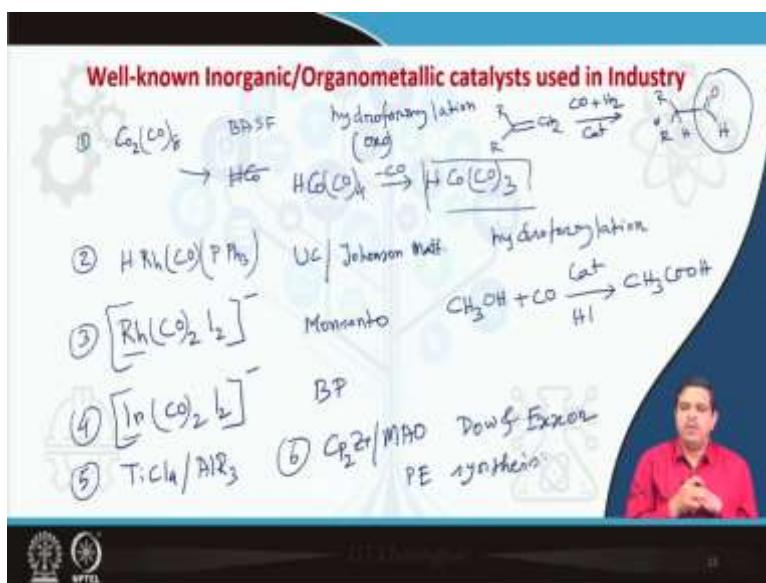 Well-known Inorganic/Organometallic catalysts used in Industry
① Co₂(CO)₈ BASF hydroformylation (oxo) R R CH₂ CO + H₂ Cat R R H O H
→ HCo HCo(CO)₄ -CO → HCo(CO)₃
② HRh(CO)(PPh₃) UC/Johnson Matt. hydroformylation
③ [Rh(CO)₂I₂]⁻ Monsanto CH₃OH + CO Cat HI → CH₃COOH
④ [In(CO)₂I₂]⁻ BP
⑤ TiCl₄/AlR₃ ⑥ Cp₂Zr/MAO Dow & Exxon
PE synthesis
NPTEL